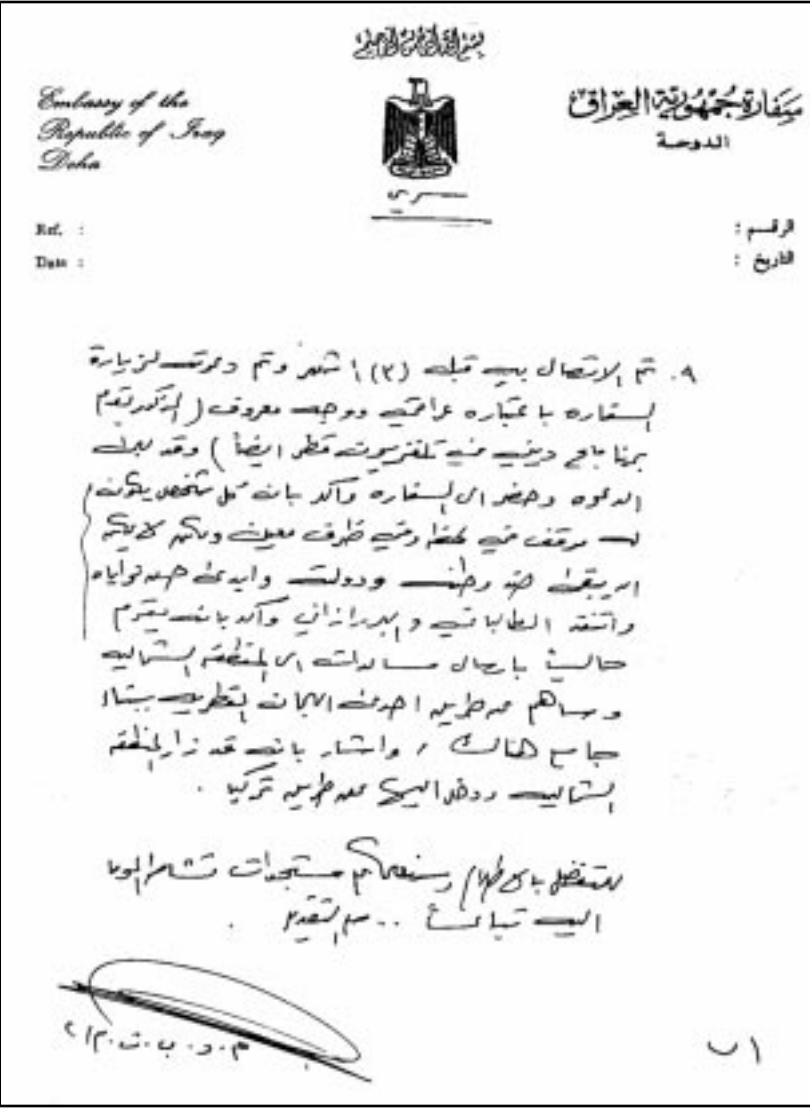 بسم الله الرحمن الرحيم
Embassy of the
Republic of Iraq
Doha
سفارة جمهورية العراق
الدوحة
سري
Ref. :
Date :
الرقم :
التاريخ :
٩. تم الاتصال به قبل (٣) اشهر وتم دعوته لزيارة
السفاره باعتباره عراقي ووجه معروف ( المذكور يقدم
برنامج ديني في تلفزيون قطر ايضاً ) وقد لبى
الدعوه وحضر الى السفاره وأكد بان كل شخص يكون
له موقف في لحظة وفي ظرف معين ولكن لا يمكن
ان يبقى ضد وطنه ودولته وابدى حسن نواياه
وانتقد الطالباني والبرزاني وأكد بانه يقوم
حالياً بارسال مساعدات الى المنطقه الشماليه
وساهم عن طريق احدى اللجان القطريه ببناء
جامع هناك / واشار بانه قد زار المنطقه
الشماليه ودخل اليها عن طريق تركيا .
للتفضل بالاطلاع وسنعلمكم مستجدات
اليه تباعاً .. مع التقدير .
م.د.ب.ت.م/٢